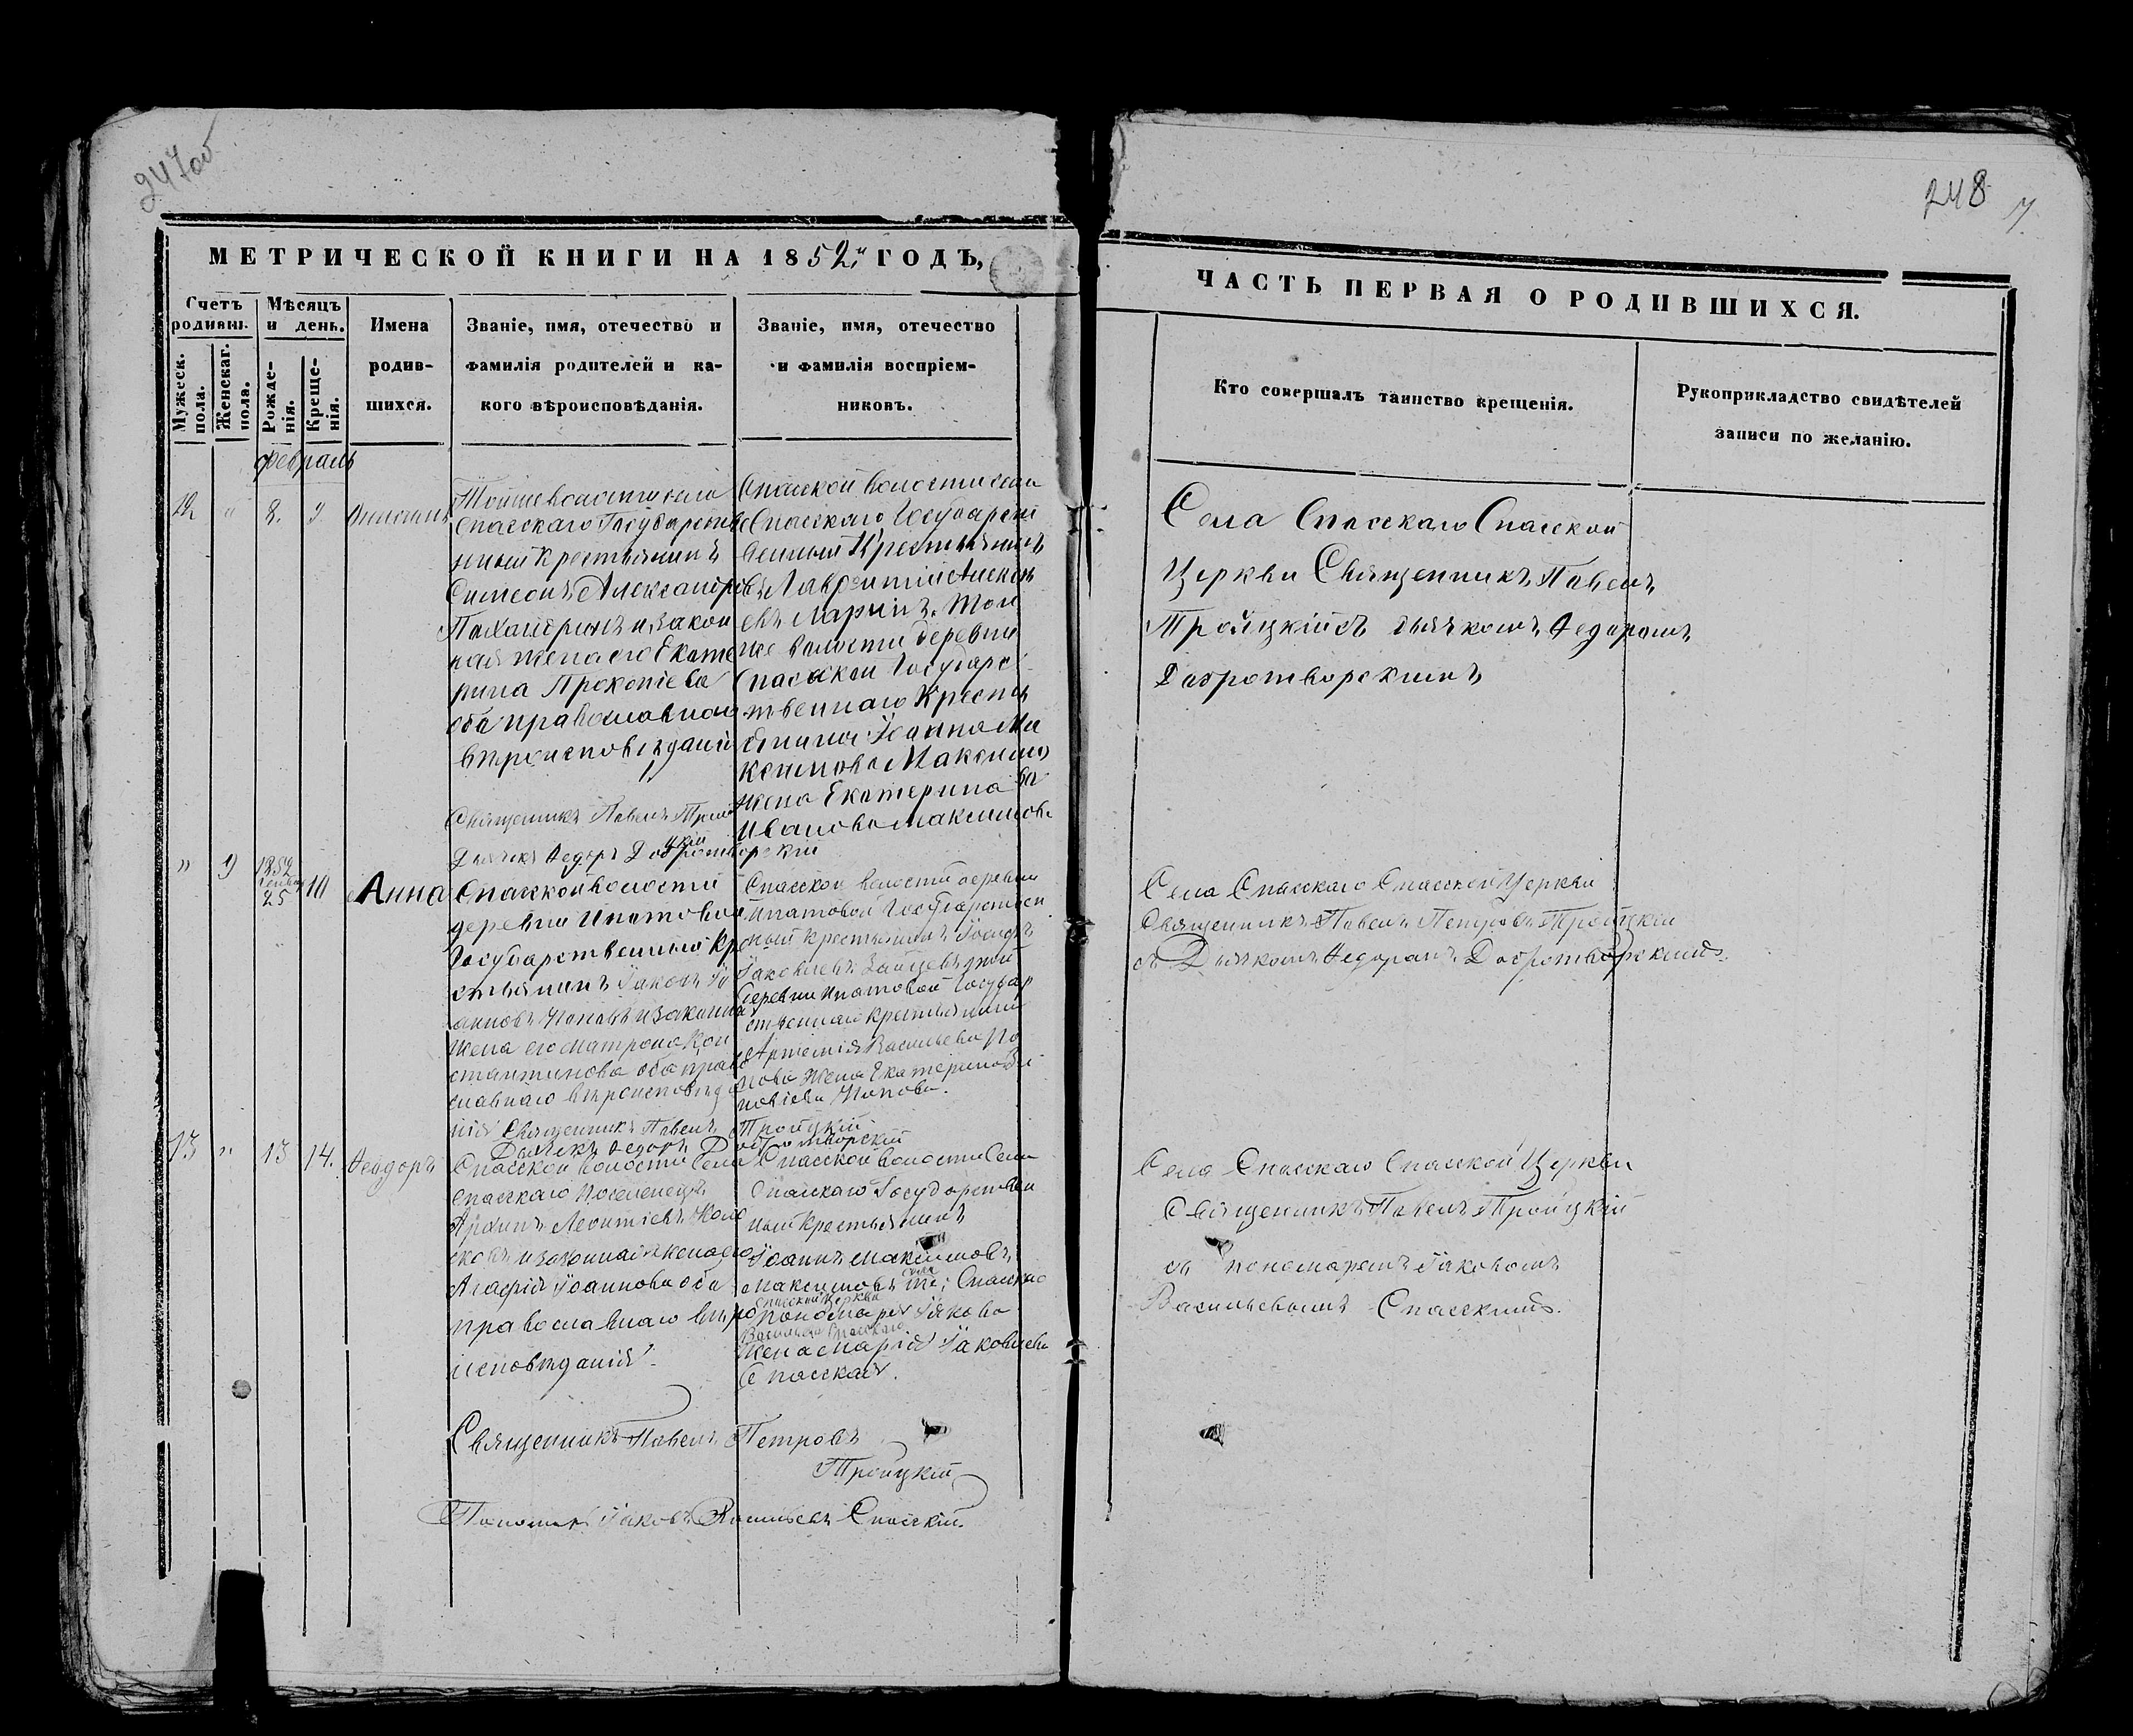 247об
248
7
МЕТРИЧЕСКОЙ КНИГИ НА 1852й ГОДЪ,
ЧАСТЬ ПЕРВАЯ О РОДИВШИХСЯ.
Счетъ родивш.
Мужеск. пола.
Женскаг. пола.
Мѣсяцъ и день.
Рожде-
нія.
Креще-
нія.
Имена
родив-
шихся.
Званіе, имя, отечество и
фамилія родителей и ка-
кого вѣроисповѣданія.
Званіе, имя, отечество
и фамилія воспріем-
никовъ.
Кто совершалъ таинство крещенія.
Рукоприкладство свидѣтелей
записи по желанію.
февраль
12 " 8. 9
Тойже волости села
Спасскаго Государстве
нный крестьянинъ
Симеонъ Александровъ
и закон
ная жена его Екате
рина Прокопіева
оба православнаго
вѣроисповѣданій
Священникъ Павелъ Трои
цкій
Дьячекъ Федоръ Добротворскій
Спасской волости села
Спасскаго Государст
венный Крестьянинъ
Лаврентій Алексѣ
евъ Ларинъ. Той
же волости деревни
Спасской Государс
твеннаго Кресть
янина Іоанна Ма
ксимова Максимо
ва
жена Екатерина
Иванова Максимова
Села Спасскаго Спасской
Церкви Священникъ Павелъ
Троицкій съ дьячкомъ Федоромъ
Добротворскимъ
" 9 1852 Генвар 25 10 Анна
Спасской волости
деревни Ипатовой
Государственный Кре
стьянинъ Іаковъ Іо
анновъ Поповъ и законная
жена его Матрона Кон
стантинова оба право
славнаго вѣроисповѣда
нія Священникъ Павелъ Троицкій
Дьячекъ Федоръ Добротворскій
Спасской волости деревни
Ипатовой Государствен
ный крестьянинъ Іосифъ
Іаковлевъ Зайцевъ той
деревни Ипатовой Государ
ственнаго крестьянина
Артемія Васильева По
пова жена Екатерина
Попова.
Села Спасскаго Спасской Церкви
Священникъ Павелъ Петровъ Троицкій
съ Дьячкомъ Федоромъ Добротворскимъ.
13 " 13 14. Феодоръ
Спасской волости Села
Спасскаго поселенецъ
Архипъ Леонтіевъ
и законная жена его
Агафія Іоаннова оба
православнаго вѣро
исповѣданія.
Спасской волости Села
Спасскаго Государствен
ный Крестьянинъ
Іоаннъ Максимовъ
Максимовъ, села Спасскаго
Спасской Церкви
пономаря Іякова
Васильева Спасскаго
жена Марія Іаковлева
Спасская.
Села Спасскаго Спасской Церкви
Священникъ Павелъ Троицкій
съ пономаремъ Іаковомъ
Васильевымъ Спасскимъ.
Священникъ Павелъ Петровъ
Троицкій
Пономарь Іаковъ Васильевъ Спасскій.